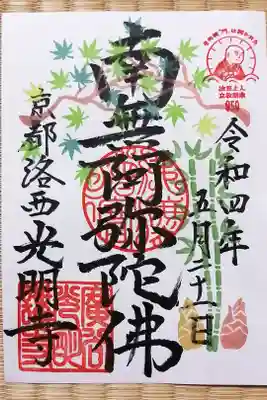 法然上人
立教開宗
850
令和四年
五月二十一日
南無阿弥陀佛
京都洛西光明寺